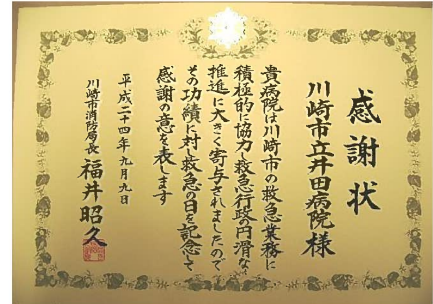 感謝状
川崎市立井田病院様
貴病院は川崎市の救急業務に
積極的に協力し救急行政の円滑な
推進に大きく寄与されましたので
その功績に対し救急の日を記念して
感謝の意を表します
平成二十四年九月九日
川崎市消防局長 福井昭久